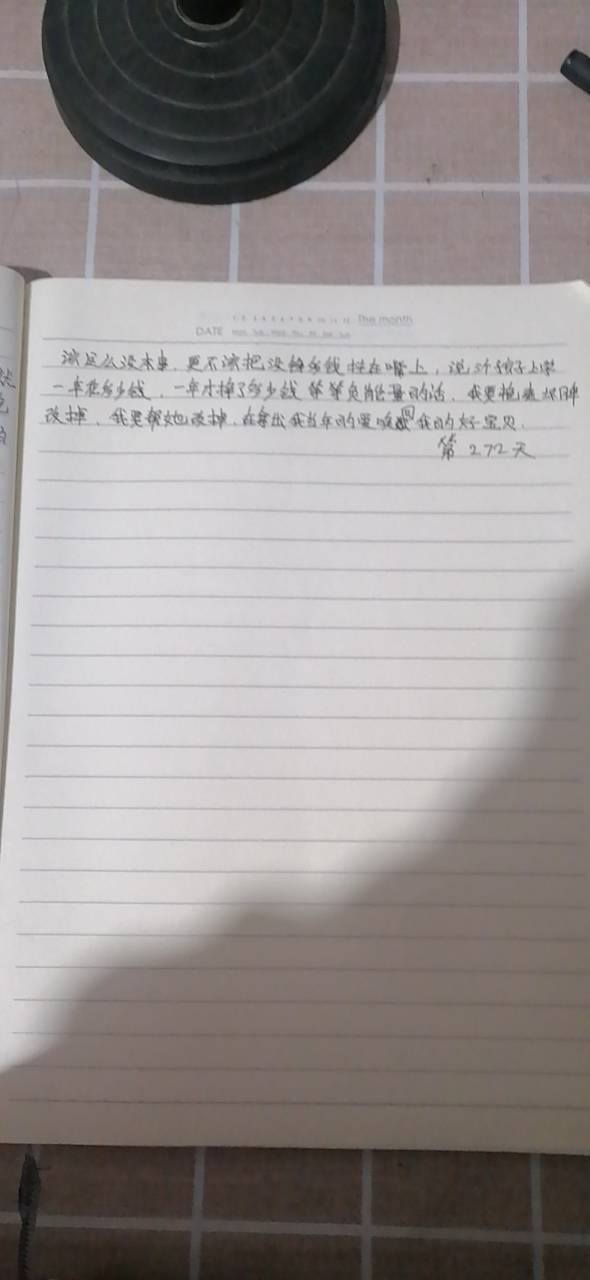 The month
DATE Mon Tue Wed Thu Fri Sat Sun
该怎么没本事，更不该把没钱多钱挂在嘴上，说好孩子上学
一年花多少钱，一年才挣了多少钱等等负能量的话，我要把这坏脾
改掉，我要帮她改掉，在拿出我当年的爱唤回我的好宝贝.
第272天